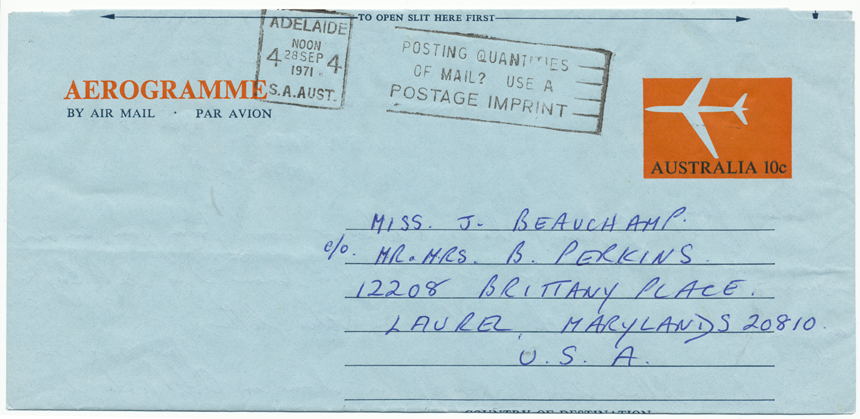 TO OPEN SLIT HERE FIRST
ADELAIDE
NOON
4 28 SEP 4
1971
S.A. AUST.
POSTING QUANTITIES
OF MAIL? USE A
POSTAGE IMPRINT
AEROGRAMME
BY AIR MAIL · PAR AVION
AUSTRALIA 10c
MISS. J. BEAUCHAMP.
c/o. MR. MRS. B. PERKINS.
12208 BRITTANY PLACE.
LAUREL, MARYLANDS 20810.
U.S.A.
COUNTRY OF DESTINATION